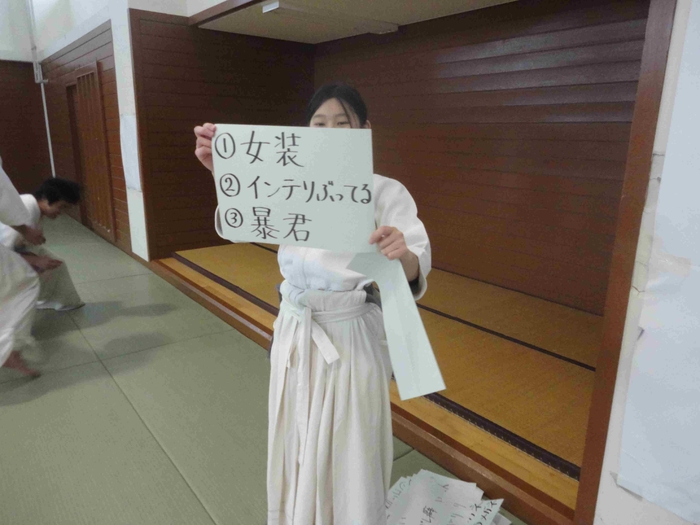 ①女装
②インテリぶってる
③暴君